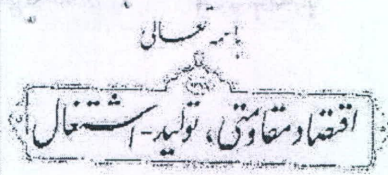 باسمه تعالی
۱۳۹۶
اقتصاد مقاومتی، تولید - اشتغال